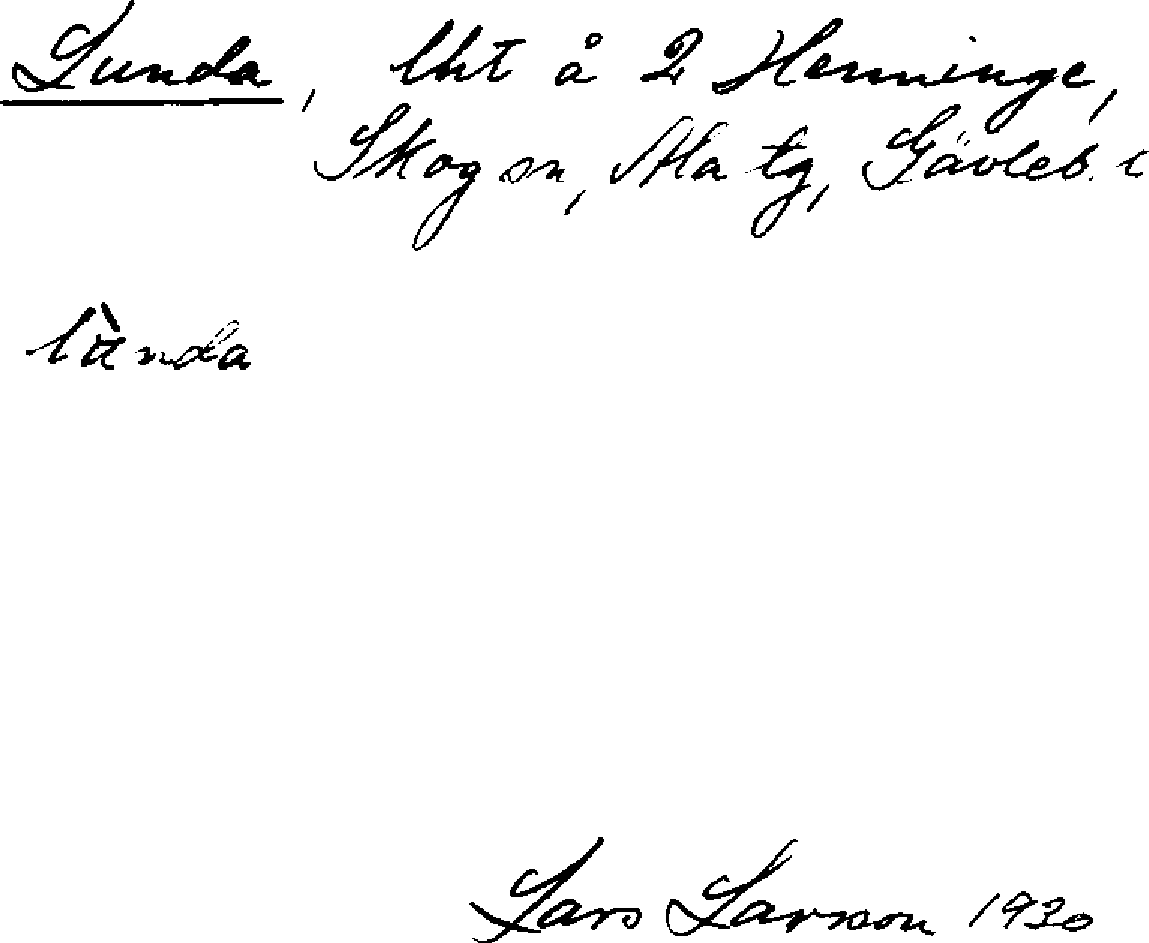 Lunda, lht å 2 Hemminge,
Skog sn, Ala tg, Gävleb. l
lùnda
Lars Larsson 1930